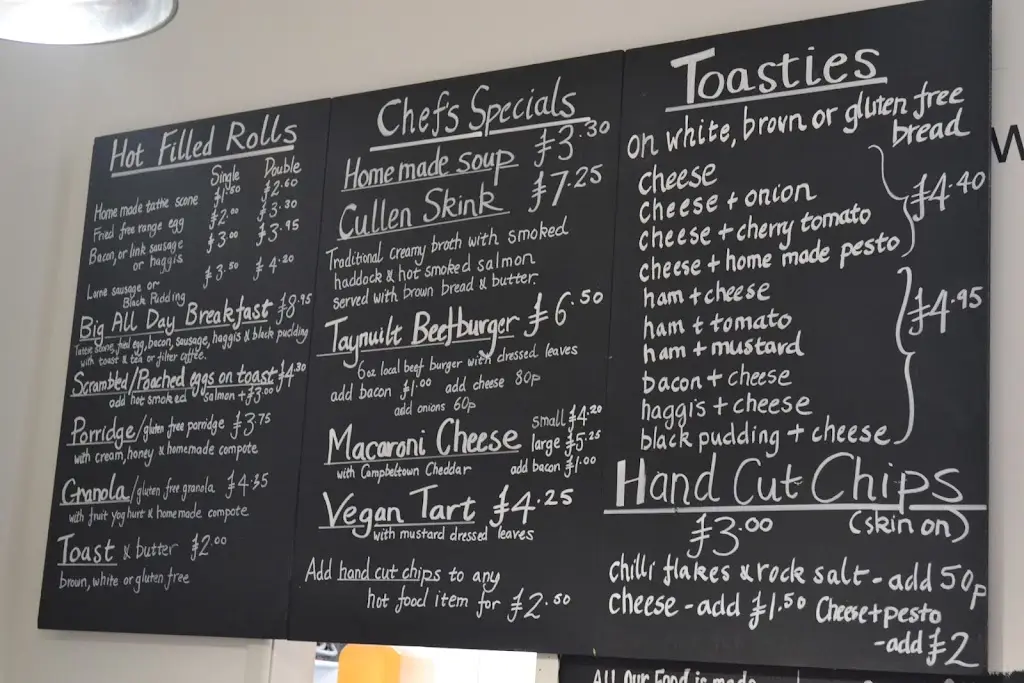 Hot Filled Rolls
Single Double
Home made tattie scone £1.50 £2.60
Fried free range egg £2.00 £3.30
Bacon, or link sausage £3.00 £3.95
or haggis
Lorne sausage or £3.50 £4.20
Black Pudding
Big All Day Breakfast £8.95
Tattie scone, fried egg, bacon, sausage, haggis & black pudding
with toast & tea or filter coffee.
Scrambled/Poached eggs on toast £4.30
add hot smoked salmon + £3.00
Porridge/gluten free porridge £3.75
with cream, honey & homemade compote
Granola/gluten free granola £4.35
with fruit yoghurt & homemade compote
Toast & butter £2.00
brown, white or gluten free
Chefs Specials
Home made soup £3.30
Cullen Skink £7.25
Traditional creamy broth with smoked
haddock & hot smoked salmon
served with brown bread & butter.
Taynuilt Beefburger £6.50
6oz local beef burger with dressed leaves
add bacon £1.00 add cheese 80p
add onions 60p
Macaroni Cheese small £4.20
large £5.25
with Campbeltown Cheddar add bacon £1.00
Vegan Tart £4.25
with mustard dressed leaves
Add hand cut chips to any
hot food item for £2.50
Toasties
on white, brown or gluten free
bread
cheese
cheese + onion £4.40
cheese + cherry tomato
cheese + home made pesto
ham + cheese
ham + tomato £4.95
ham + mustard
bacon + cheese
haggis + cheese
black pudding + cheese
Hand Cut Chips
£3.00 (skin on)
chilli flakes & rock salt - add 50p
cheese - add £1.50 Cheese + pesto
- add £2
All our Food is made
W